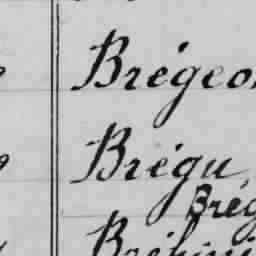 Brégeo
Brégu
Brég
Bréhini